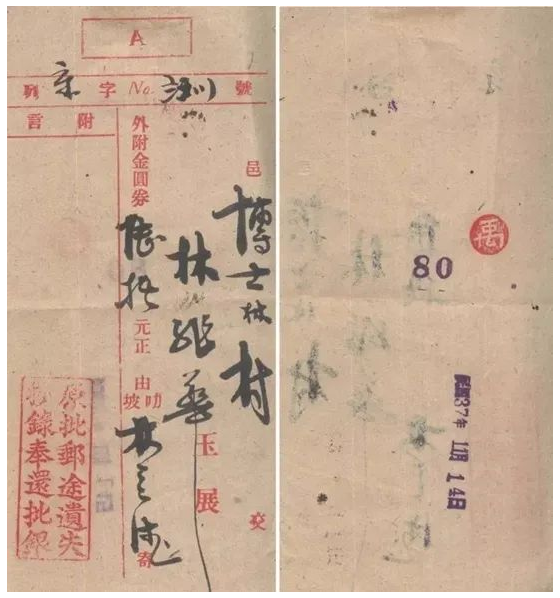 A
列字No.號
邑博士林村交
林維華玉展
外附金圓券陸拾元正由叻坡林寄
附言
原批郵途遺失
錄奉還批銀
80
民國37年11月14日